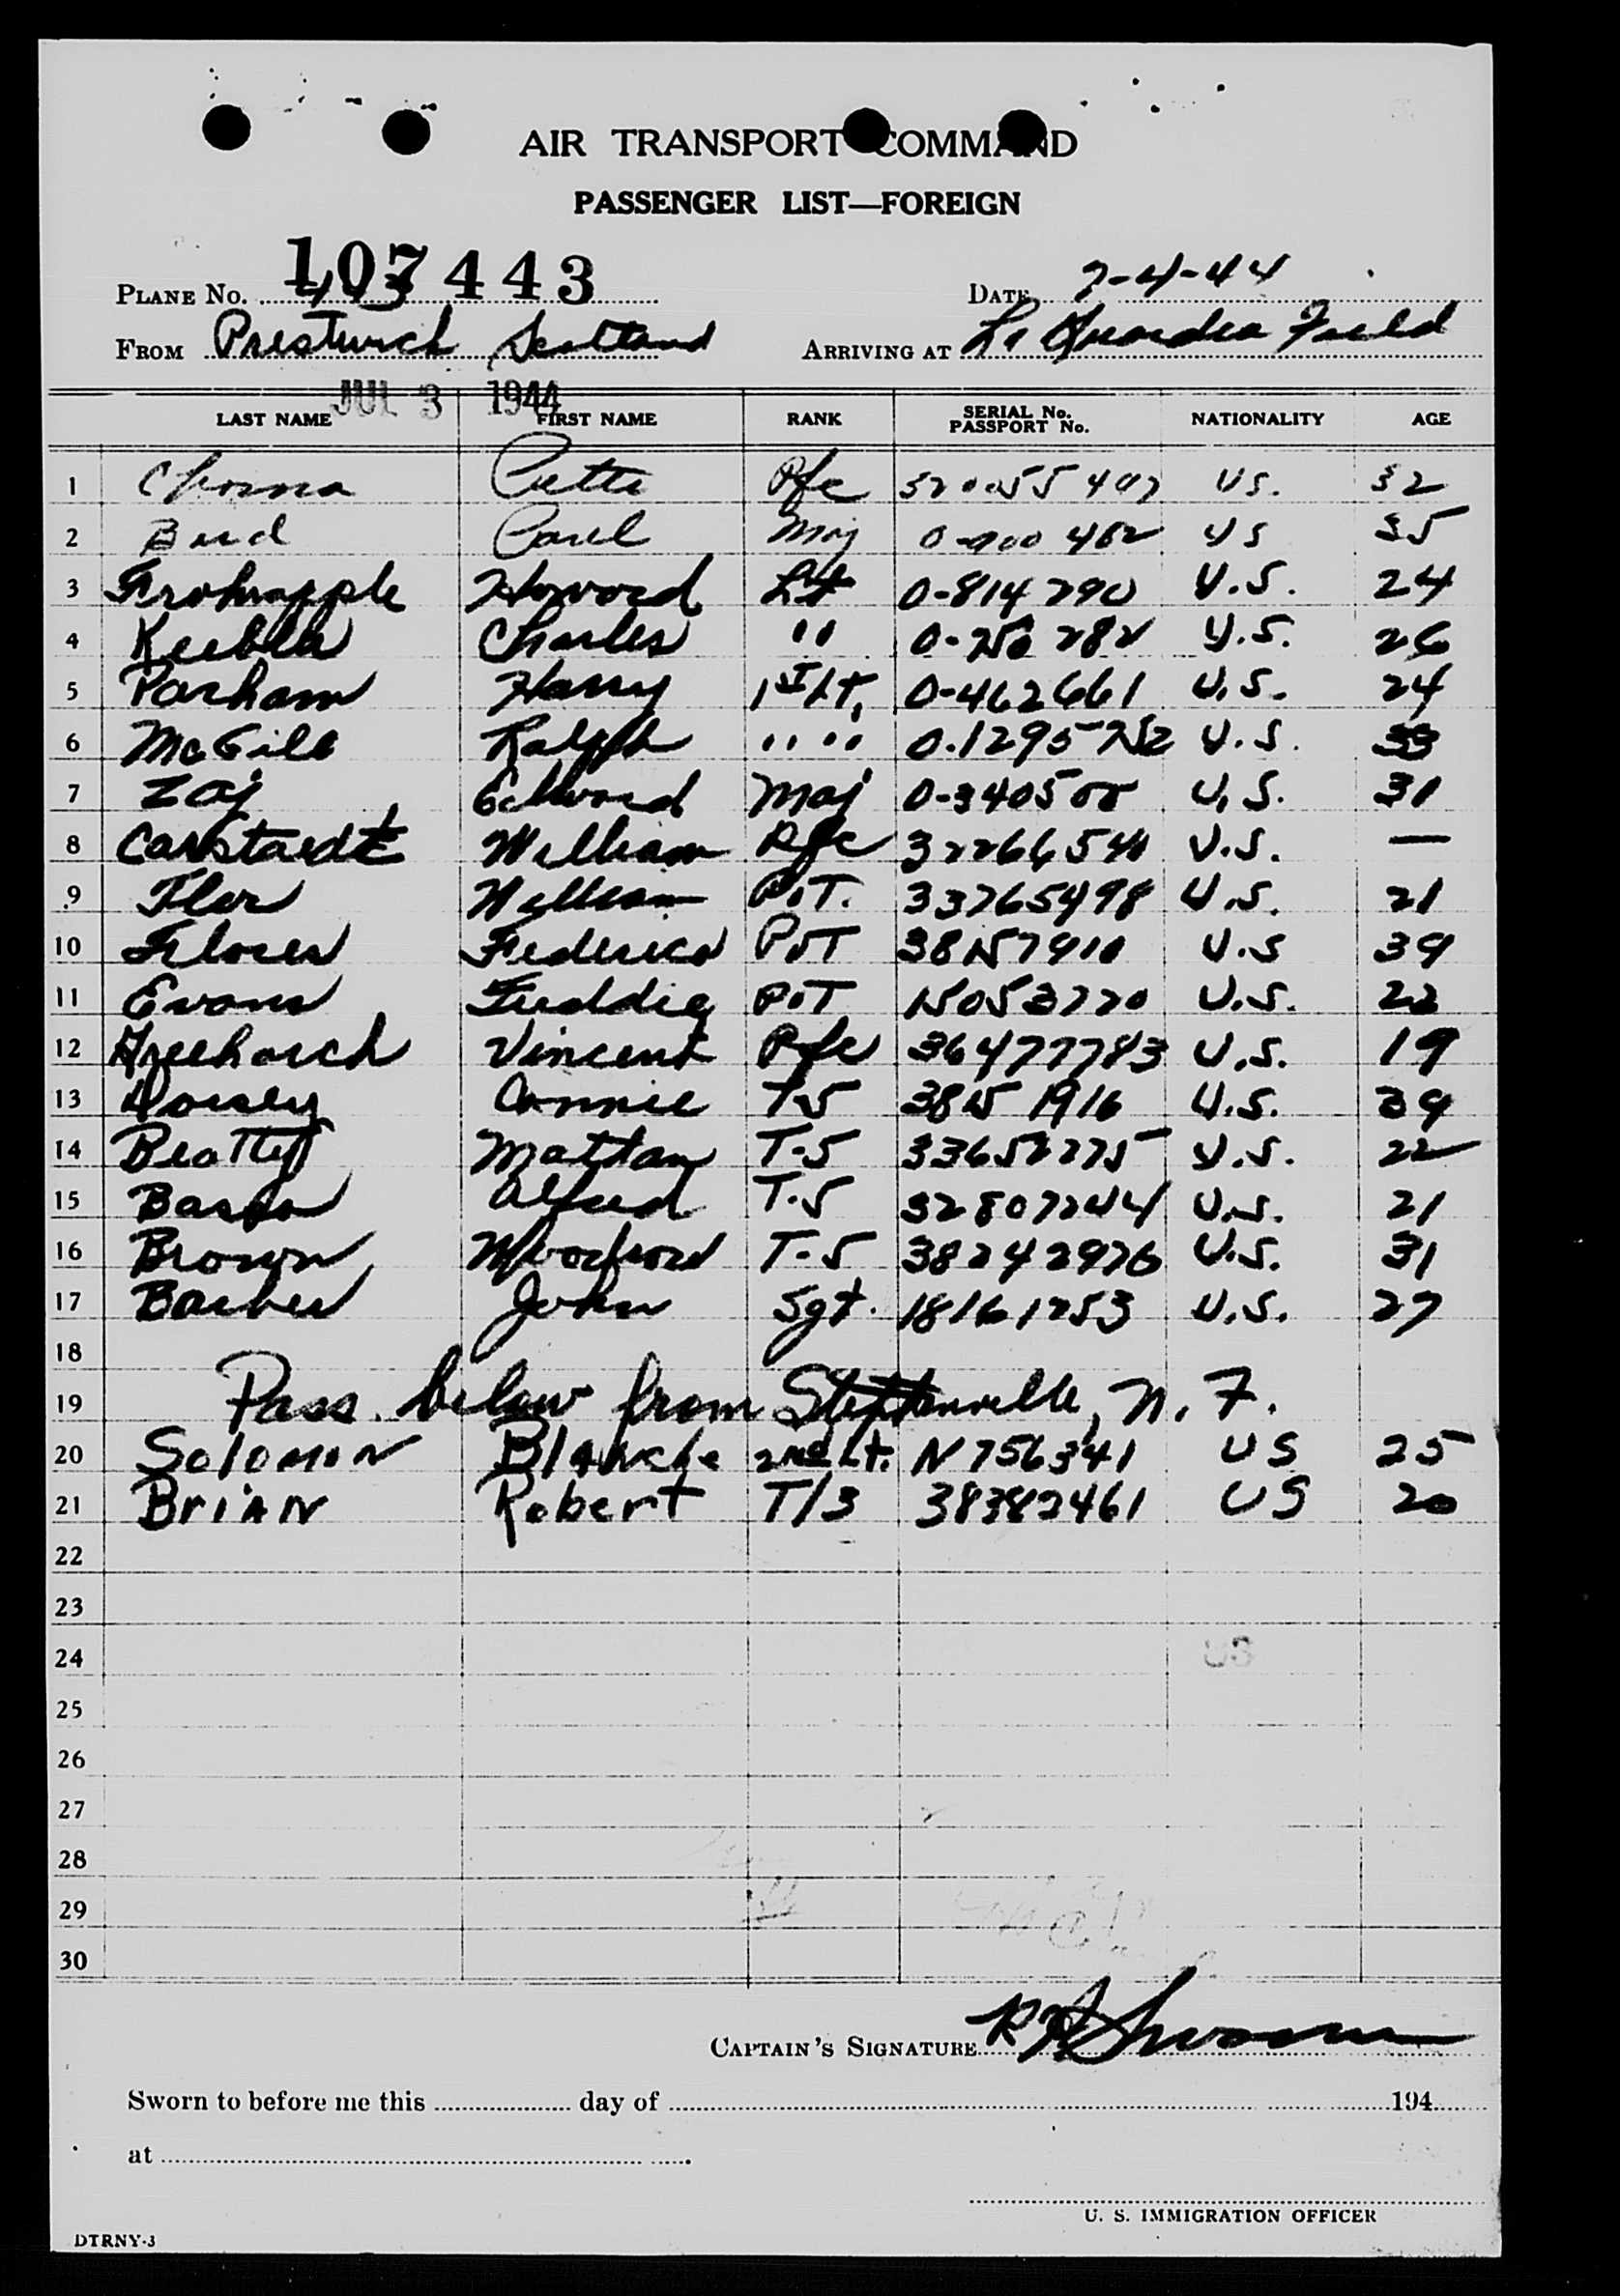 AIR TRANSPORT COMMAND
PASSENGER LIST—FOREIGN
PLANE No. 107443 DATE 7-4-44
FROM Prestwick Scotland ARRIVING AT La Guardia Field
JUL 3 1944
LAST NAME FIRST NAME RANK SERIAL No. PASSPORT No. NATIONALITY AGE
1 Pfc US. 32
2 Carl Maj US 35
3 Frohnapple Howard Lt 0-814290 U.S. 24
4 Charles " U.S. 26
5 Parham Harry 1st Lt. 0-462661 U.S. 24
6 McGill Ralph " " U.S. 33
7 Zaj Edward Maj U.S. 31
8 Carstaedt William Pfc U.S. —
9 Fler William PvT. 33765498 U.S. 21
10 Flores Federico PvT U.S 39
11 Evans Freddie PvT U.S. 22
12 Vincent Pfc 36477783 U.S. 19
13 Dorsey Connie T-5 U.S. 39
14 Beatty T-5 U.S. 22
15 Alfred T-5 U.S. 21
16 Brown Woodrow T-5 38242976 U.S. 31
17 Barber John Sgt. 18161253 U.S. 27
18
19 Pass. below from Stephenville, N. F.
20 Solomon Blanche 2nd Lt. N756341 US 25
21 BriAN Robert T/3 38382461 US 20
22
23
24 US
25
26
27
28
29
30
CAPTAIN'S SIGNATURE
Sworn to before me this day of 194
at
U. S. IMMIGRATION OFFICER
DTRNY-3